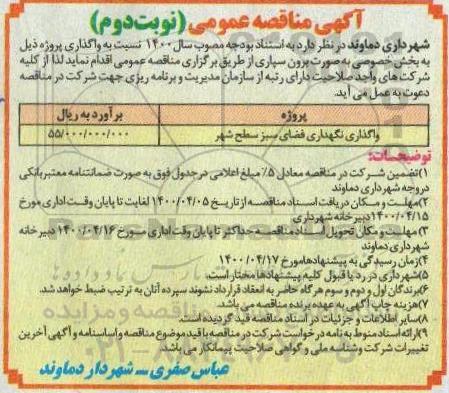 آگهی مناقصه عمومی (نوبت دوم)
شهرداری دماوند در نظر دارد به استناد بودجه مصوب سال ۱۴۰۰ نسبت به واگذاری پروژه ذیل
به بخش خصوصی به صورت برون سپاری از طریق برگزاری مناقصه عمومی اقدام نماید لذا از کلیه
شرکت های واجد صلاحیت دارای رتبه از سازمان مدیریت و برنامه ریزی جهت شرکت در مناقصه
دعوت به عمل می آید.
پروژه برآورد به ریال
واگذاری نگهداری فضای سبز سطح شهر ۵۵/۰۰۰/۰۰۰/۰۰۰
توضیحات:
۱)تضمین شرکت در مناقصه معادل ۵٪ مبلغ اعلامی در جدول فوق به صورت ضمانتنامه معتبر بانکی
در وجه شهرداری دماوند
۲)مهلت و مکان دریافت اسناد مناقصه از تاریخ ۱۴۰۰/۰۴/۰۵ لغایت تا پایان وقت اداری مورخ
۱۴۰۰/۰۴/۱۵ دبیرخانه شهرداری
۳) مهلت و مکان تحویل اسناد مناقصه حداکثر تا پایان وقت اداری مورخ ۱۴۰۰/۰۴/۱۶ دبیرخانه
شهرداری دماوند
۴)زمان رسیدگی به پیشنهادها مورخ ۱۴۰۰/۰۴/۱۷
۵)شهرداری در رد یا قبول کلیه پیشنهادها مختار است.
۶)برندگان اول و دوم و سوم هرگاه حاضر به انعقاد قرارداد نشوند سپرده آنان به ترتیب ضبط خواهد شد.
۷)هزینه چاپ آگهی به عهده برنده مناقصه می باشد.
۸)سایر اطلاعات و جزئیات در اسناد مناقصه قید گردیده است.
۹)ارائه اسناد منوط به نامه درخواست شرکت در مناقصه با قید موضوع مناقصه و اساسنامه و آگهی آخرین
تغییرات شرکت و شناسه ملی و گواهی صلاحیت پیمانکار می باشد
عباس صفری - شهردار دماوند